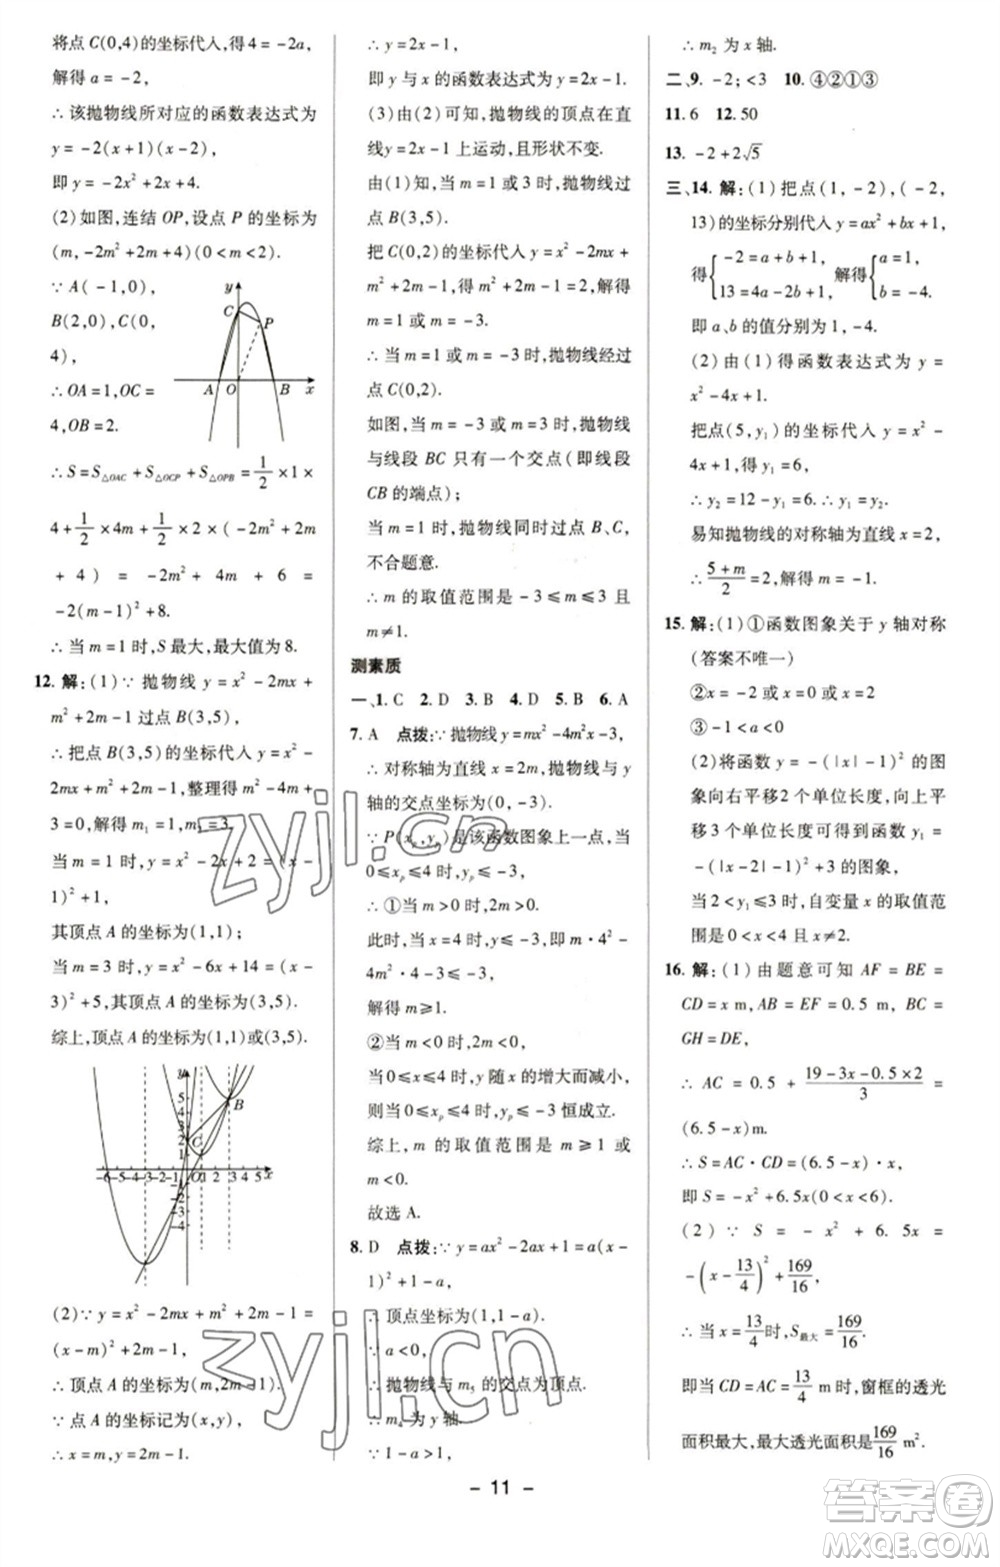 将点 C(0,4)的坐标代入,得 4 = -2a,
解得 a = -2,
∴ 该抛物线所对应的函数表达式为
y = -2(x+1)(x-2),
即 y = -2x² + 2x + 4.
(2)如图,连结 OP,设点 P 的坐标为
(m, -2m² + 2m + 4)(0 < m < 2).
∵ A( -1,0),
B(2,0),C(0,
4),
∴ OA = 1,OC =
4,OB = 2.
y
C
P
A O B x
∴ S = S△OAC + S△OCP + S△OPB = 1/2 × 1 ×
4 + 1/2 × 4m + 1/2 × 2 × ( -2m² + 2m
+ 4) = -2m² + 4m + 6 =
-2(m-1)² + 8.
∴ 当 m = 1 时,S 最大,最大值为 8.
12. 解:(1)∵ 抛物线 y = x² - 2mx +
m² + 2m - 1 过点 B(3,5),
∴ 把点 B(3,5)的坐标代入 y = x² -
2mx + m² + 2m - 1,整理得 m² - 4m +
3 = 0,解得 m₁ = 1,m₂ = 3.
当 m = 1 时,y = x² - 2x + 2 = (x -
1)² + 1,
其顶点 A 的坐标为(1,1);
当 m = 3 时,y = x² - 6x + 14 = (x -
3)² + 5,其顶点 A 的坐标为(3,5).
综上,顶点 A 的坐标为(1,1)或(3,5).
y
5
4
3
2
1
B
C
-6-5-4-3-2-1 O 1 2 3 4 5 x
-1
-2
-3
-4
(2)∵ y = x² - 2mx + m² + 2m - 1 =
(x - m)² + 2m - 1,
∴ 顶点 A 的坐标为(m,2m-1).
∵ 点 A 的坐标记为(x,y),
∴ x = m,y = 2m - 1.
∴ y = 2x - 1,
即 y 与 x 的函数表达式为 y = 2x - 1.
(3)由(2)可知,抛物线的顶点在直
线 y = 2x - 1 上运动,且形状不变.
由(1)知,当 m = 1 或 3 时,抛物线过
点 B(3,5).
把 C(0,2)的坐标代入 y = x² - 2mx +
m² + 2m - 1,得 m² + 2m - 1 = 2,解得
m = 1 或 -3.
∴ 当 m = 1 或 m = -3 时,抛物线经过
点 C(0,2).
如图,当 m = -3 或 m = 3 时,抛物线
与线段 BC 只有一个交点(即线段
CB 的端点);
当 m = 1 时,抛物线同时过点 B、C,
不合题意.
∴ m 的取值范围是 -3 ≤ m ≤ 3 且
m ≠ 1.
测素质
一、1. C 2. D 3. B 4. D 5. B 6. A
7. A 点拨:∵ 抛物线 y = mx² - 4m²x - 3,
∴ 对称轴为直线 x = 2m,抛物线与 y
轴的交点坐标为(0, -3).
∵ P(xₚ,yₚ)是该函数图象上一点,当
0 ≤ xₚ ≤ 4 时,yₚ ≤ -3,
∴ ①当 m > 0 时,2m > 0,
此时,当 x = 4 时,y ≤ -3,即 m · 4² -
4m² × 4 - 3 ≤ -3,
解得 m ≥ 1.
②当 m < 0 时,2m < 0,
当 0 ≤ x ≤ 4 时,y 随 x 的增大而减小,
则当 0 ≤ xₚ ≤ 4 时,yₚ ≤ -3 恒成立.
综上,m 的取值范围是 m ≥ 1 或
m < 0.
故选 A.
8. D 点拨:∵ y = ax² - 2ax + 1 = a(x -
1)² + 1 - a,
∴ 顶点坐标为(1,1-a).
∵ a < 0,
∴ 抛物线与 m₅ 的交点为顶点.
∴ m₄ 为 y 轴.
∵ 1 - a > 1,
∴ m₂ 为 x 轴.
二、9. -2; <3 10. ④②①③
11. 6 12. 50
13. -2 + 2√5
三、14. 解:(1)把点(1, -2),( -2,
13)的坐标分别代入 y = ax² + bx + 1,
得{ -2 = a + b + 1, 13 = 4a - 2b + 1, 解得{ a = 1, b = -4.
即 a、b 的值分别为 1, -4.
(2)由(1)得函数表达式为 y =
x² - 4x + 1.
把点(5,y₁)的坐标代入 y = x² -
4x + 1,得 y₁ = 6,
∴ y₂ = 12 - y₁ = 6,∴ y₁ = y₂.
易知抛物线的对称轴为直线 x = 2,
∴ (5+m)/2 = 2,解得 m = -1.
15. 解:(1)①函数图象关于 y 轴对称
(答案不唯一)
②x = -2 或 x = 0 或 x = 2
③ -1 < a < 0
(2)将函数 y = -( |x| - 1)² 的图
象向右平移2 个单位长度,向上平
移3 个单位长度可得到函数 y₁ =
-( |x-2| - 1)² + 3 的图象,
当 2 < y₁ ≤ 3 时,自变量 x 的取值范
围是 0 < x < 4 且 x ≠ 2.
16. 解:(1)由题意可知 AF = BE =
CD = x m,AB = EF = 0.5 m, BC =
GH = DE,
∴ AC = 0.5 + (19-3x-0.5×2)/3 =
(6.5 - x)m.
∴ S = AC · CD = (6.5 - x) · x,
即 S = -x² + 6.5x.
(2)∵ S = -x² + 6.5x =
-(x - 13/4)² + 169/16,
∴ 当 x = 13/4 时,S最大 = 169/16.
即当 CD = AC = 13/4 m 时,窗框的透光
面积最大,最大透光面积是 169/16 m².
- 11 -
zyjl.cn
zyjl.cn
答案圈
MXQE.COM